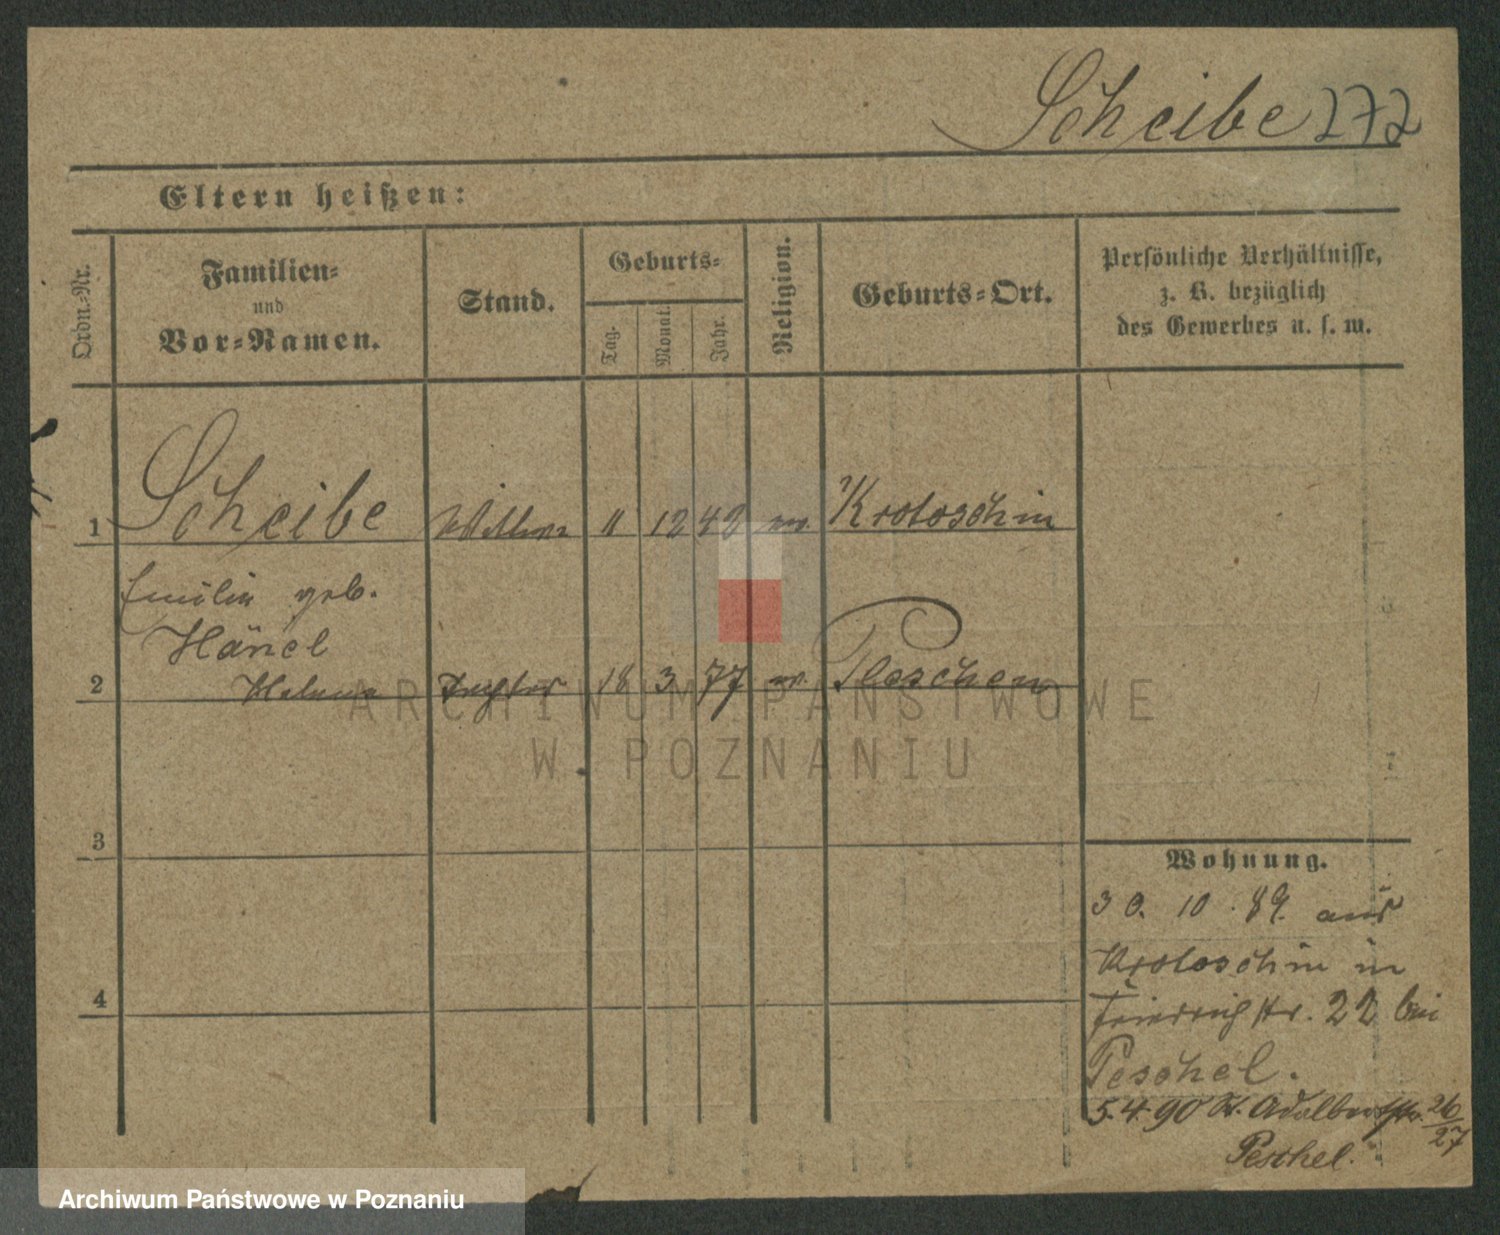 Scheibe 272
Eltern heißen:
Ordn.-Nr.
Familien-
und
Vor-Namen.
Stand.
Geburts-
Tag.
Monat.
Jahr.
Religion.
Geburts-Ort.
Persönliche Verhältnisse,
z. B. bezüglich
des Gewerbes u. s. w.
1 Scheibe Wittwe 11 12 42 ev. Krotoschin
Emilie geb.
Hänel
2 Helene Tochter 18 3 77 ev. Pleschen
3
4
Wohnung.
30. 10. 89. aus
Krotoschin in
Friedrichstr. 22 bei
Peschel.
5.4.90 Kl. Adalbertstr. 26/27
Peschel.
ARCHIWUM PAŃSTWOWE
W POZNANIU
Archiwum Państwowe w Poznaniu